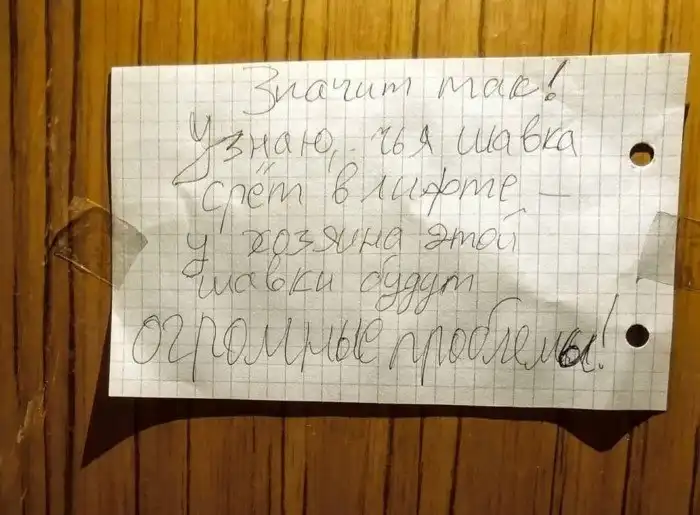 Значит так!
Узнаю, чья шавка
срёт в лифте –
у хозяина этой
шавки будут
огромные проблемы!